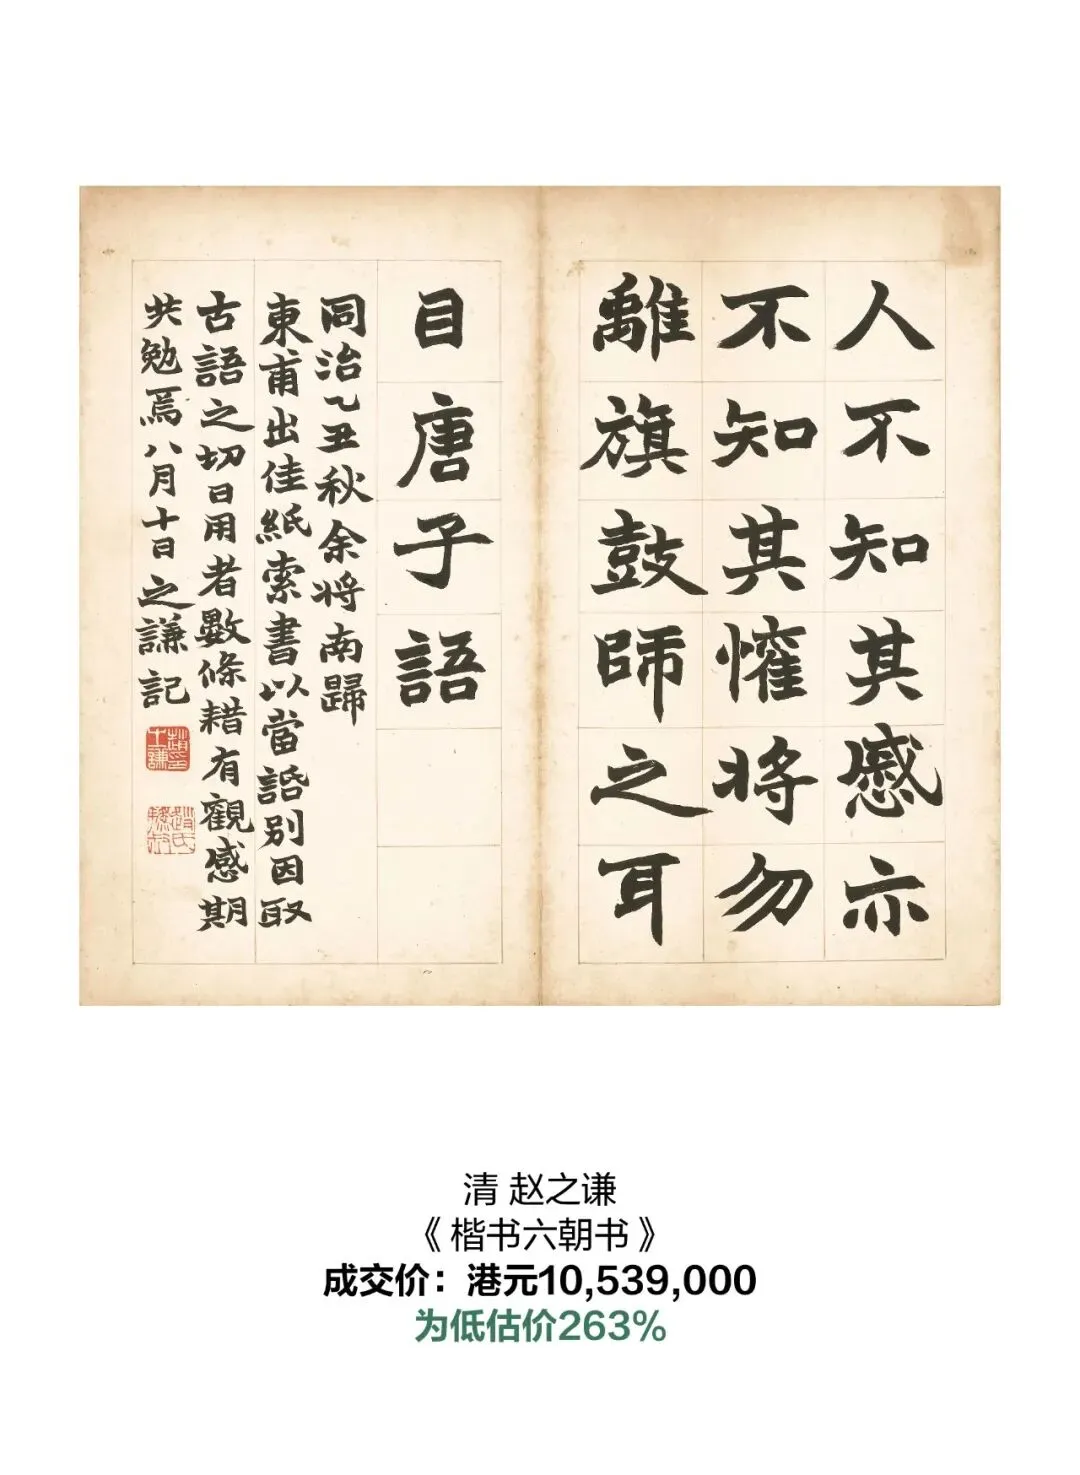 人不知其慼亦
不知其懽将勿
離旗鼓師之耳
目唐子語
同治乙丑秋余将南歸
東甫出佳紙索書以當諙别因取
古語之切日用者數條耤有觀感期
共勉焉八月十日之謙記
清 赵之谦
《 楷书六朝书 》
成交价：港元10,539,000
为低估价263%